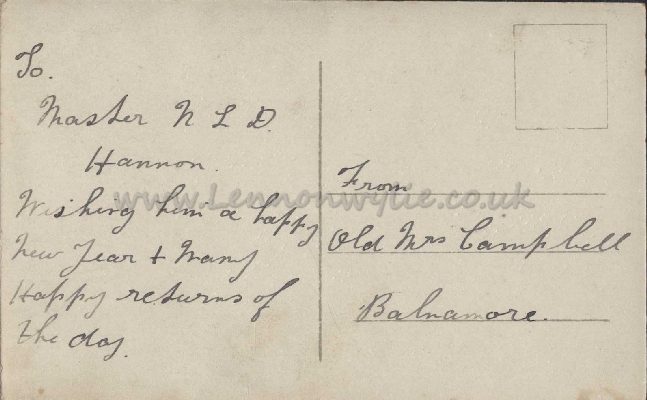 To.
Master N L D.
Hannon.
Wishing him a happy
New Year + Many
Happy returns of
the day.
From
Old Mrs Campbell
Balnamore.
www.Lennonwylie.co.uk